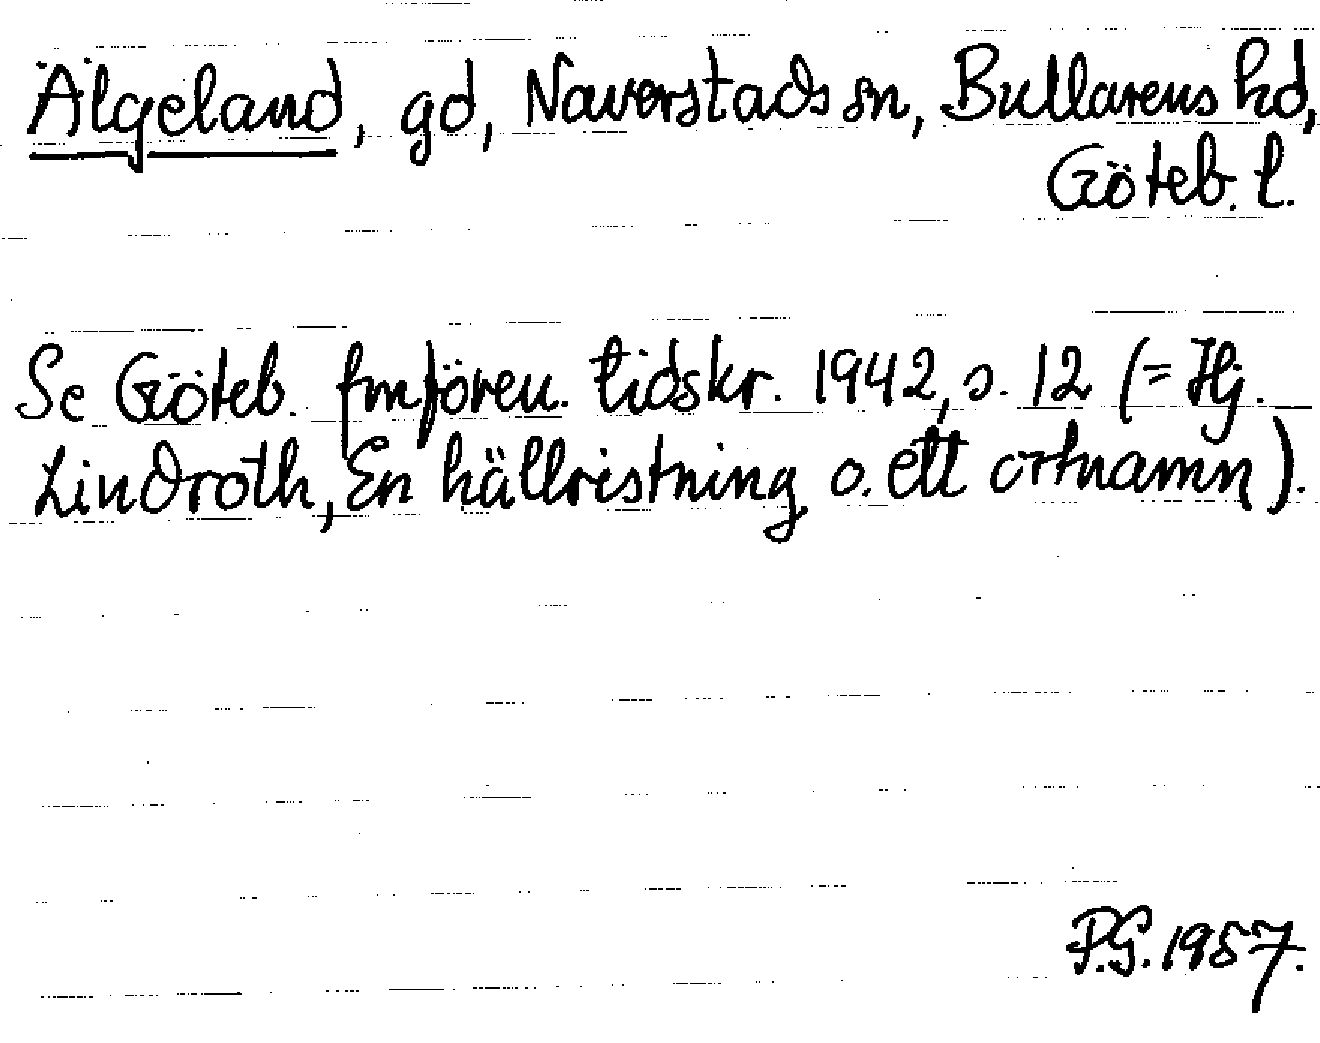 Älgeland, gd, Naverstads sn, Bullarens hd,
Göteb. l.
Se Göteb. fmfören. tidskr. 1942, s. 12 (= Hj.
Lindroth, En hällristning o. ett ortnamn).
P.G. 1957.